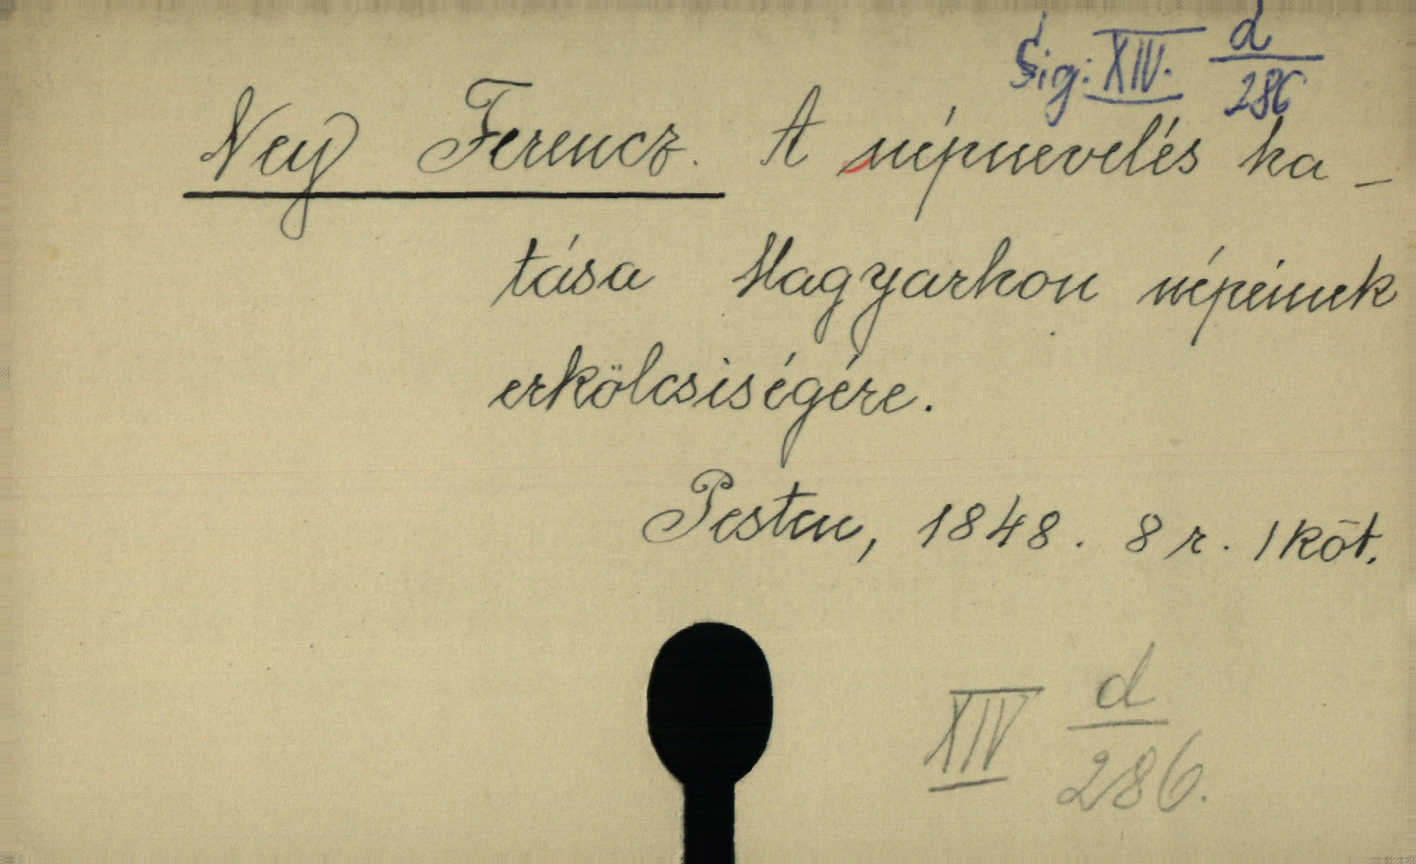 Sig: XIV. d/286
Ney Ferencz. A népnevelés ha-
tása Magyarhon népeinek
erkölcsiségére.
Pesten, 1848. 8 r. 1 köt.
XIV d/286.